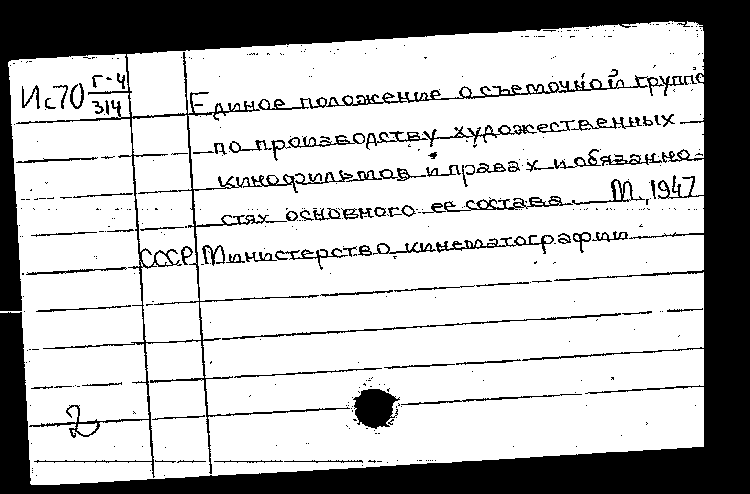 Ис70 Г-4/314
Единое положение о съемочной группе
по производству художественных
кинофильмов и правах и обязанно-
стях основного ее состава. М., 1947
СССР Министерство кинематографии.
2